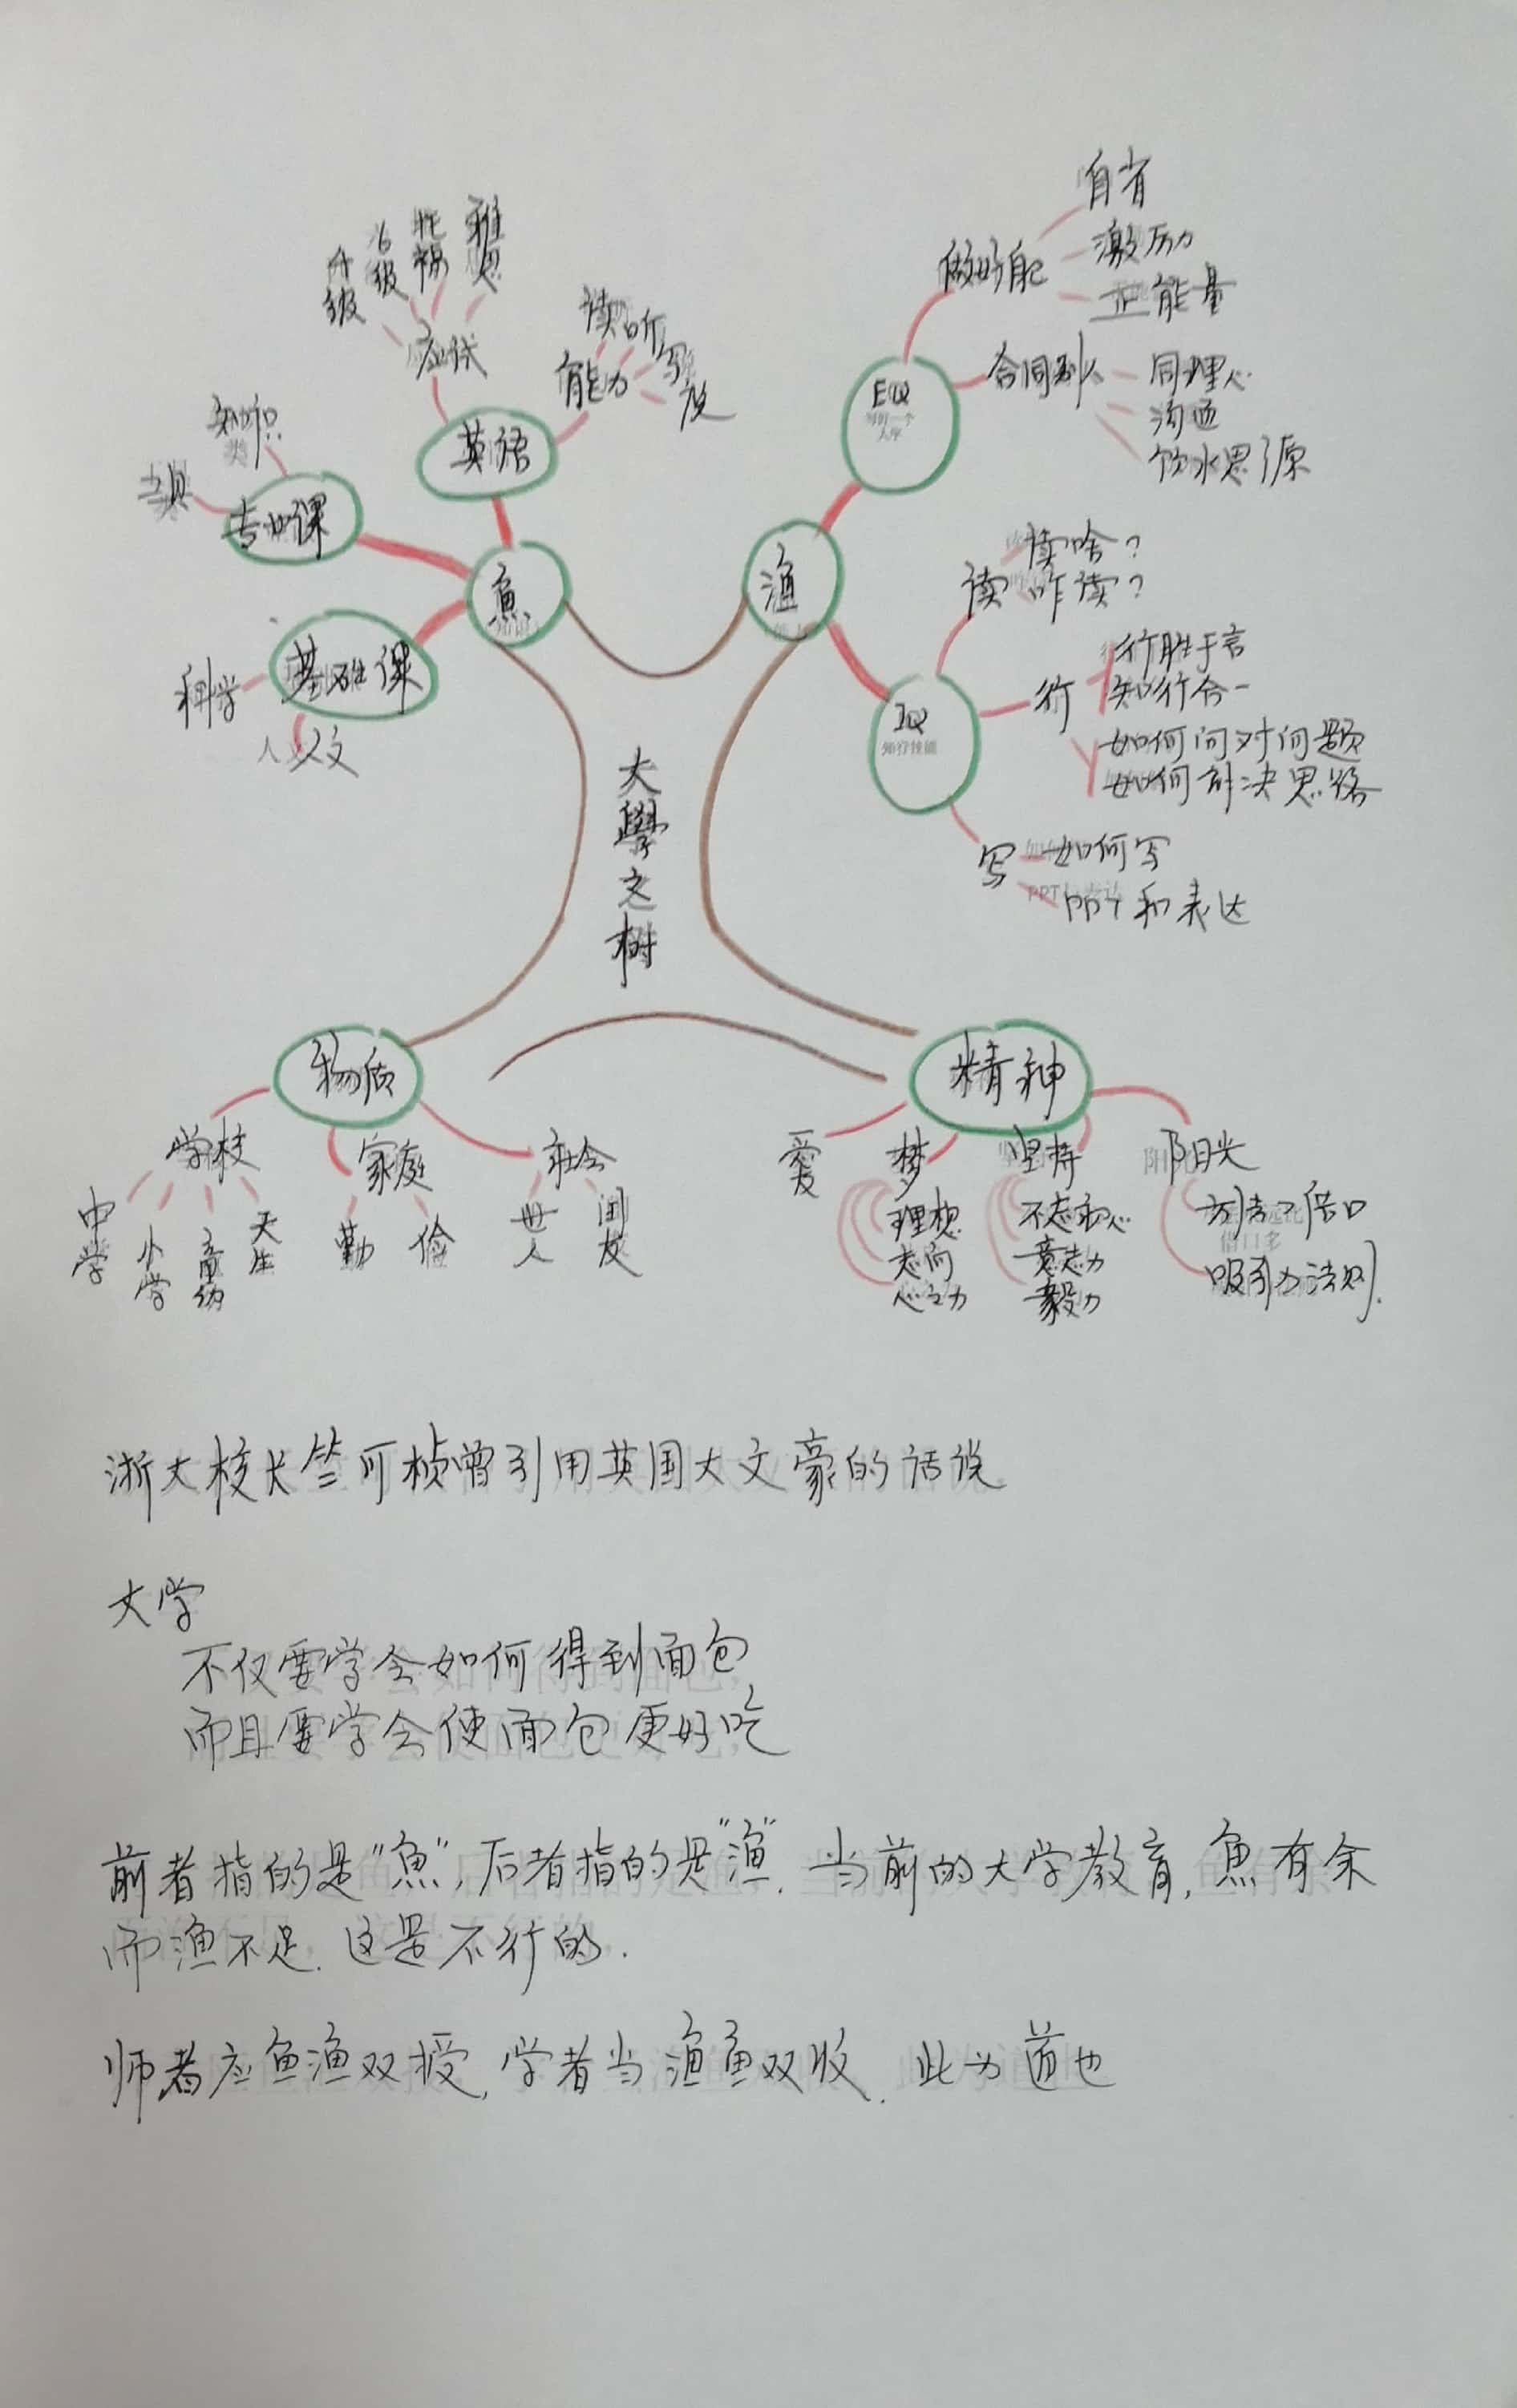 大學之树
魚
英语
应试
4级
6级
托福
雅思
能力
读
听
写
专业课
知识
类
工具
基础课
科学
人文
渔
EQ
做好自己
自省
激励力
正能量
合同别人
同理心
沟通
饮水思源
IQ
读
读啥?
咋读?
行
行胜于言
知行合一
如何问对问题
如何解决思路
写
如何写
PPT和表达
物质
学校
中学
小学
童幼
天生
家庭
勤
俭
社会
世人
朋友
精神
爱
梦
理想
志向
心之力
坚持
不忘初心
意志力
毅力
阳光
方法不借口
借口多
吸引力法则.
浙大校长竺可桢曾引用英国大文豪的话说
大学
不仅要学会如何得到面包
而且要学会使面包更好吃
前者指的是"魚",后者指的是"渔". 当前的大学教育,魚有余
而渔不足. 这是不行的.
师者应鱼渔双授,学者当渔鱼双收. 此为道也